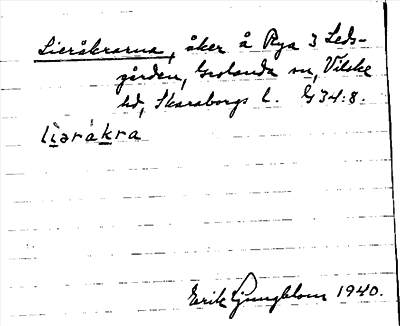 Lieråkrarna, åker å Rya 3 Leds-
gården, Grolanda sn, Vilske
hd, Skaraborgs l. G 34:8.
li̠ərák̠ra
Erik Ljungblom 1940.